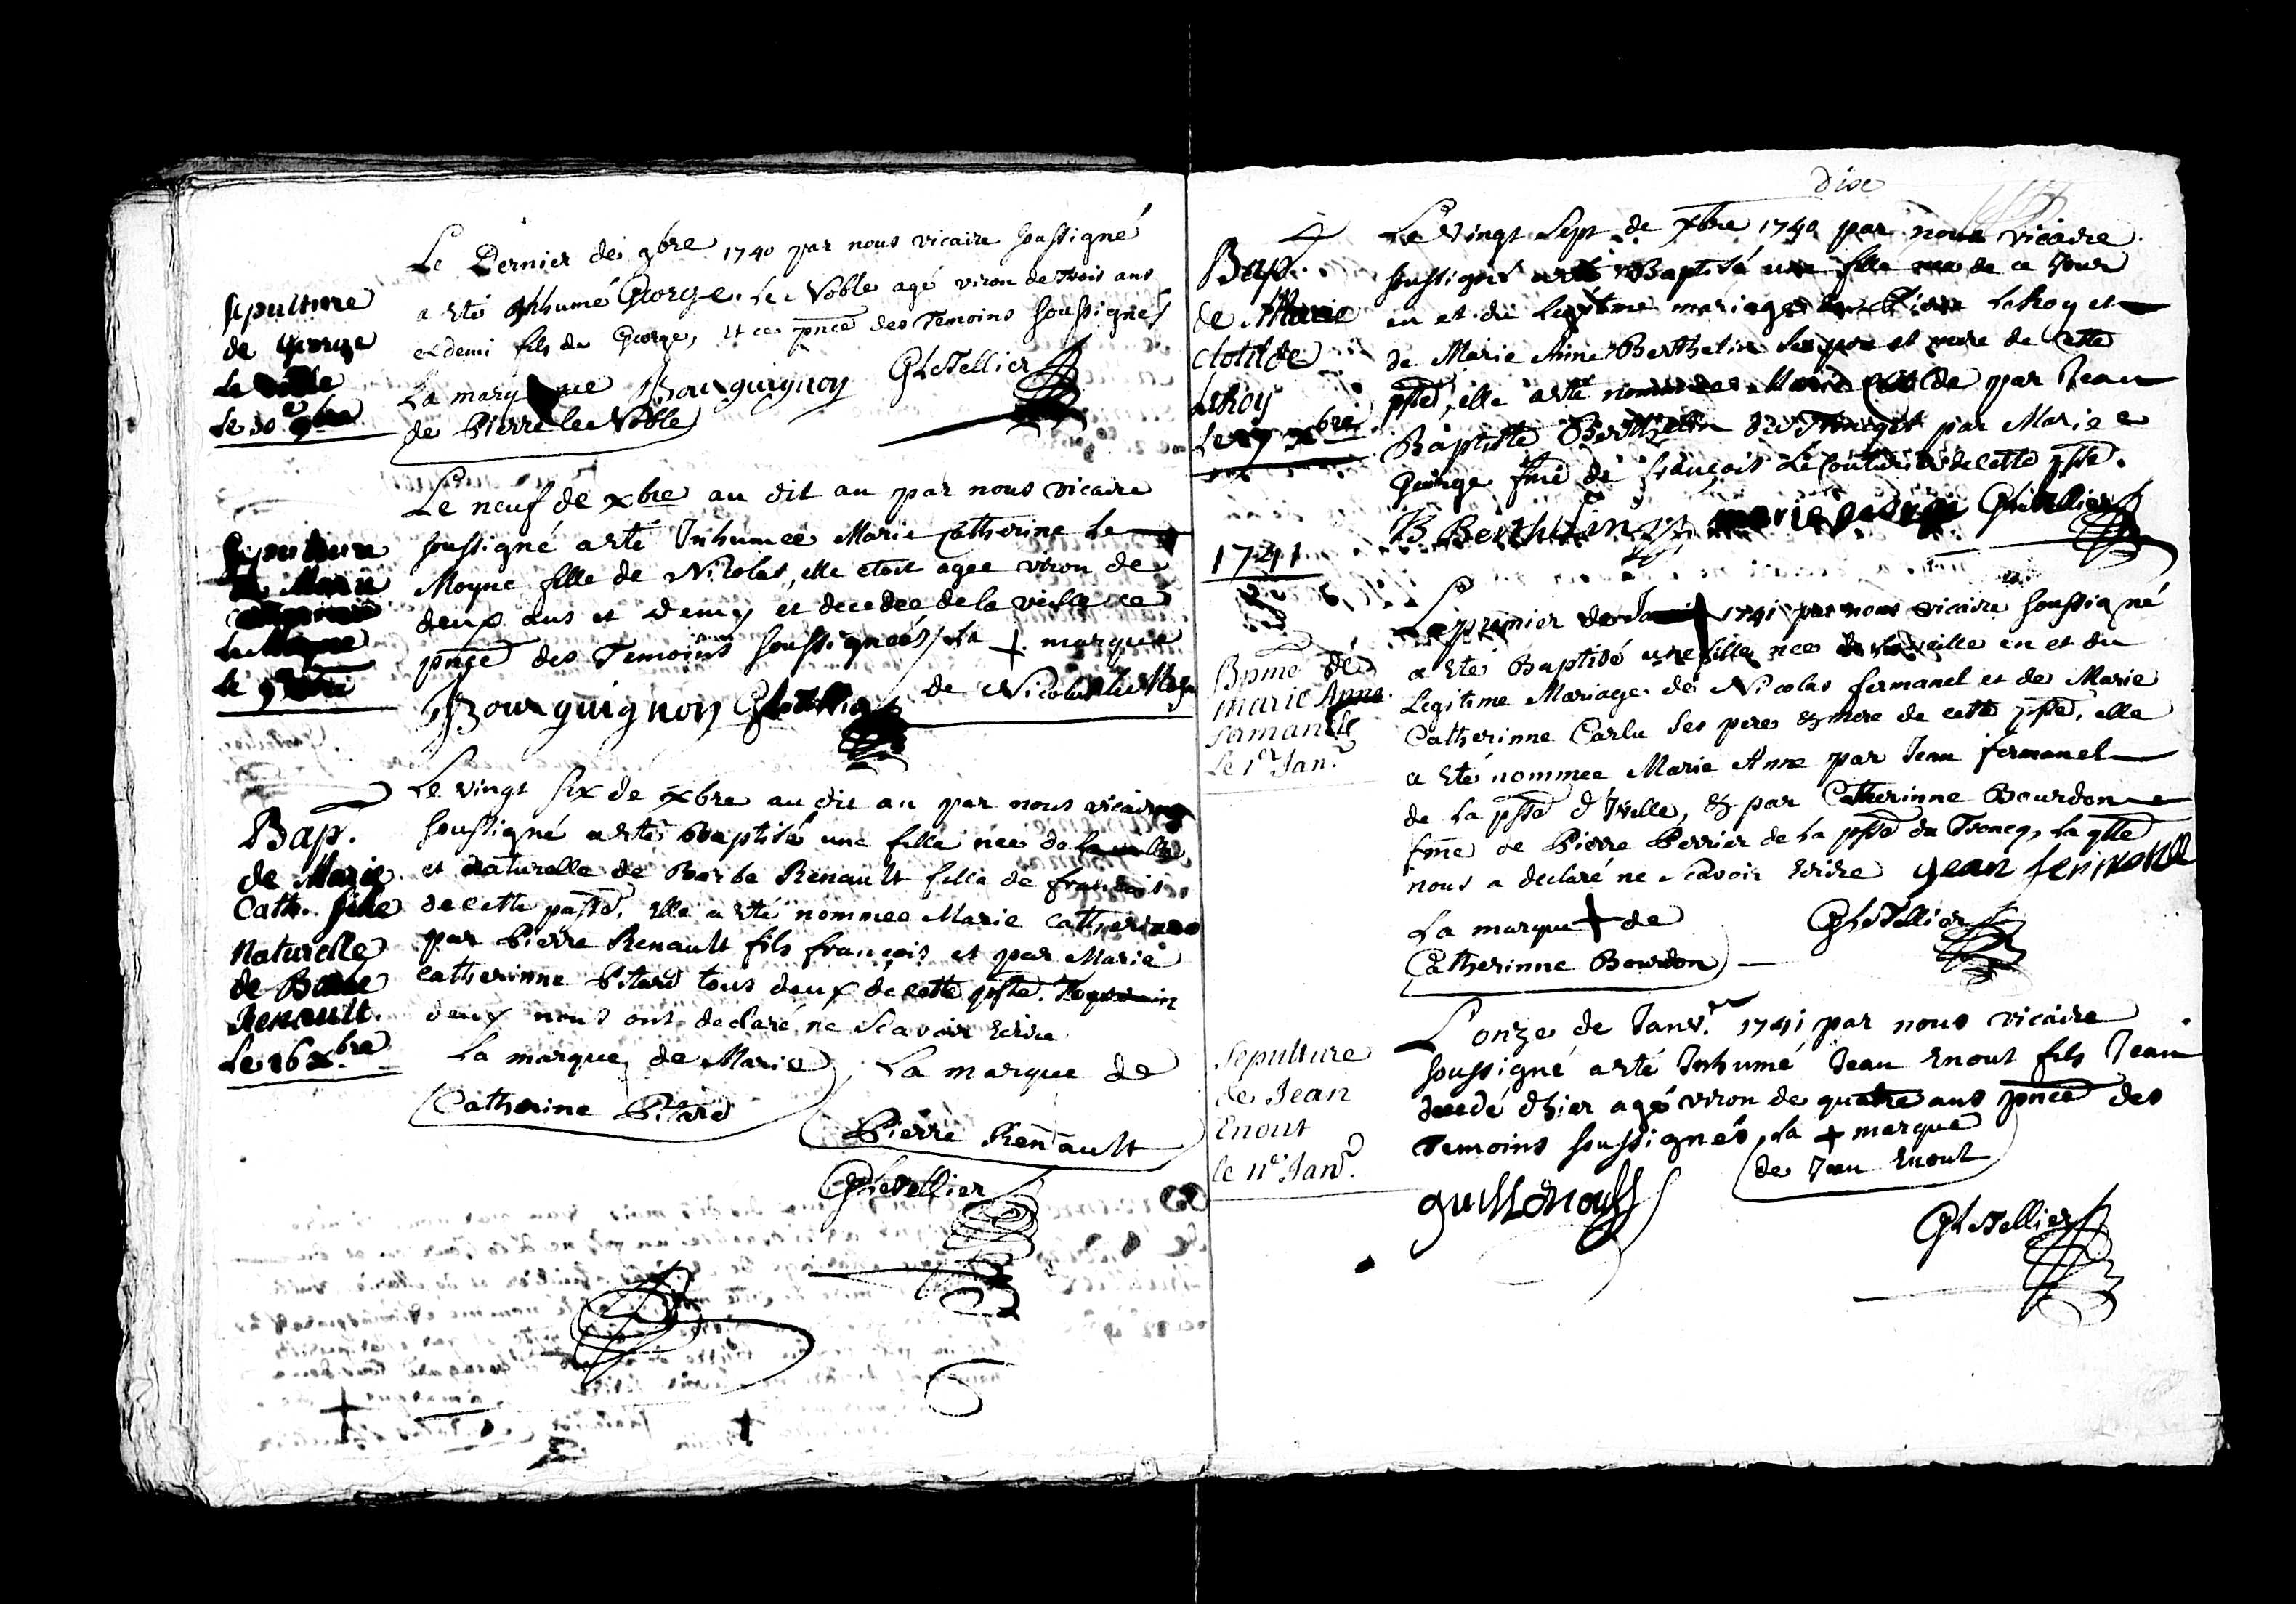 Sepulture
de George
Le
Le 30 9bre
Le Dernier de 9bre 1740 par nous vicaire soussigné
a eté Inhumé George Le Noble agé viron de Trois ans
et demi fils de George, et ce pnce des Temoins soussignés
La marque Bourguignon GLeTellier
de Pierre le Noble
Sepulture
de Marie
Le Moyne
Le 9
Le neuf de xbre au dit an par nous vicaire
soussigné a eté Inhumee Marie Catherine Le
Moyne fille de Nicolas, elle etoit agee viron de
deux ans et demy et decedee de la veille ce
pnce des Temoins soussignees / La + marque
Bourguignon GLeTellier de Nicolas le Moyne
Bap.
de Marie
Cath. fille
Naturelle
de Barbe
Renault.
Le 26 xbre
Le vingt six de xbre au dit an par nous vicaire
soussigné a eté Baptisé une fille nee de la veille
et naturelle de Barbe Renault fille de francois
de cette psse. elle a eté nommee Marie Catherinne
par Pierre Renault fils françois et par Marie
catherinne Pitard tous deux de cette psse.
deux nous ont declaré ne Scavoir Ecrire
La marque de Marie
Catherine Pitard
La marque de
Pierre Renault
GLeTellier
dix
Bap.
de Marie
Clotilde
LeRoy
Le 27 xbre
Le Vingt Sept de xbre 1740 par nous vicaire
soussigné a eté Baptisé une fille nee de ce Jour
en et du Legitime mariage de Pierre LeRoy et
de Marie Anne Berthelin ses pere et mere de Cette
psse, elle a eté nommee Marie Clotilde par Jean
Baptiste Berthelin du Troncq et par Marie
George fme de françois Le Couturier de cette psse.
JB Berthelin marie george GLeTellier
1741
Bpme de
Marie Anne
fermanel
Le 1er Janr.
Le premier de Janvr 1741 par nous vicaire soussigné
a eté Baptisé une fille nee de la veille en et du
Legitime Mariage de Nicolas fermanel et de Marie
Catherinne Carlu ses pere & mere de cette psse, elle
a eté nommee Marie Anne par Jean fermanel
de La psse d'Iville, & par Catherinne Bourdon
fme de Pierre Perrier de La psse du Troncq, La qlle
nous a declaré ne Scavoir Ecrire Jean fermanel
La marque + de
Catherinne Bourdon
GLeTellier
Sepulture
de Jean
Enout
le 11e Janr.
L'onze de Janvr. 1741 par nous vicaire
soussigné a eté Inhumé Jean Enout fils Jean
decedé d'hier agé viron de quatre ans pnce des
Temoins soussignés, La + marque
de Jean Enout
GLeTellier